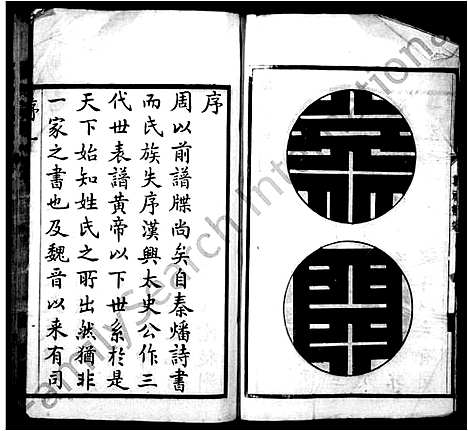 序
周以前譜牒尚矣自秦燔詩書
而氏族失序漢興太史公作三
代世表譜黃帝以下世系於是
天下始知姓氏之所出然猶非
一家之書也及魏晉以来有司
序
一
FamilySearch International